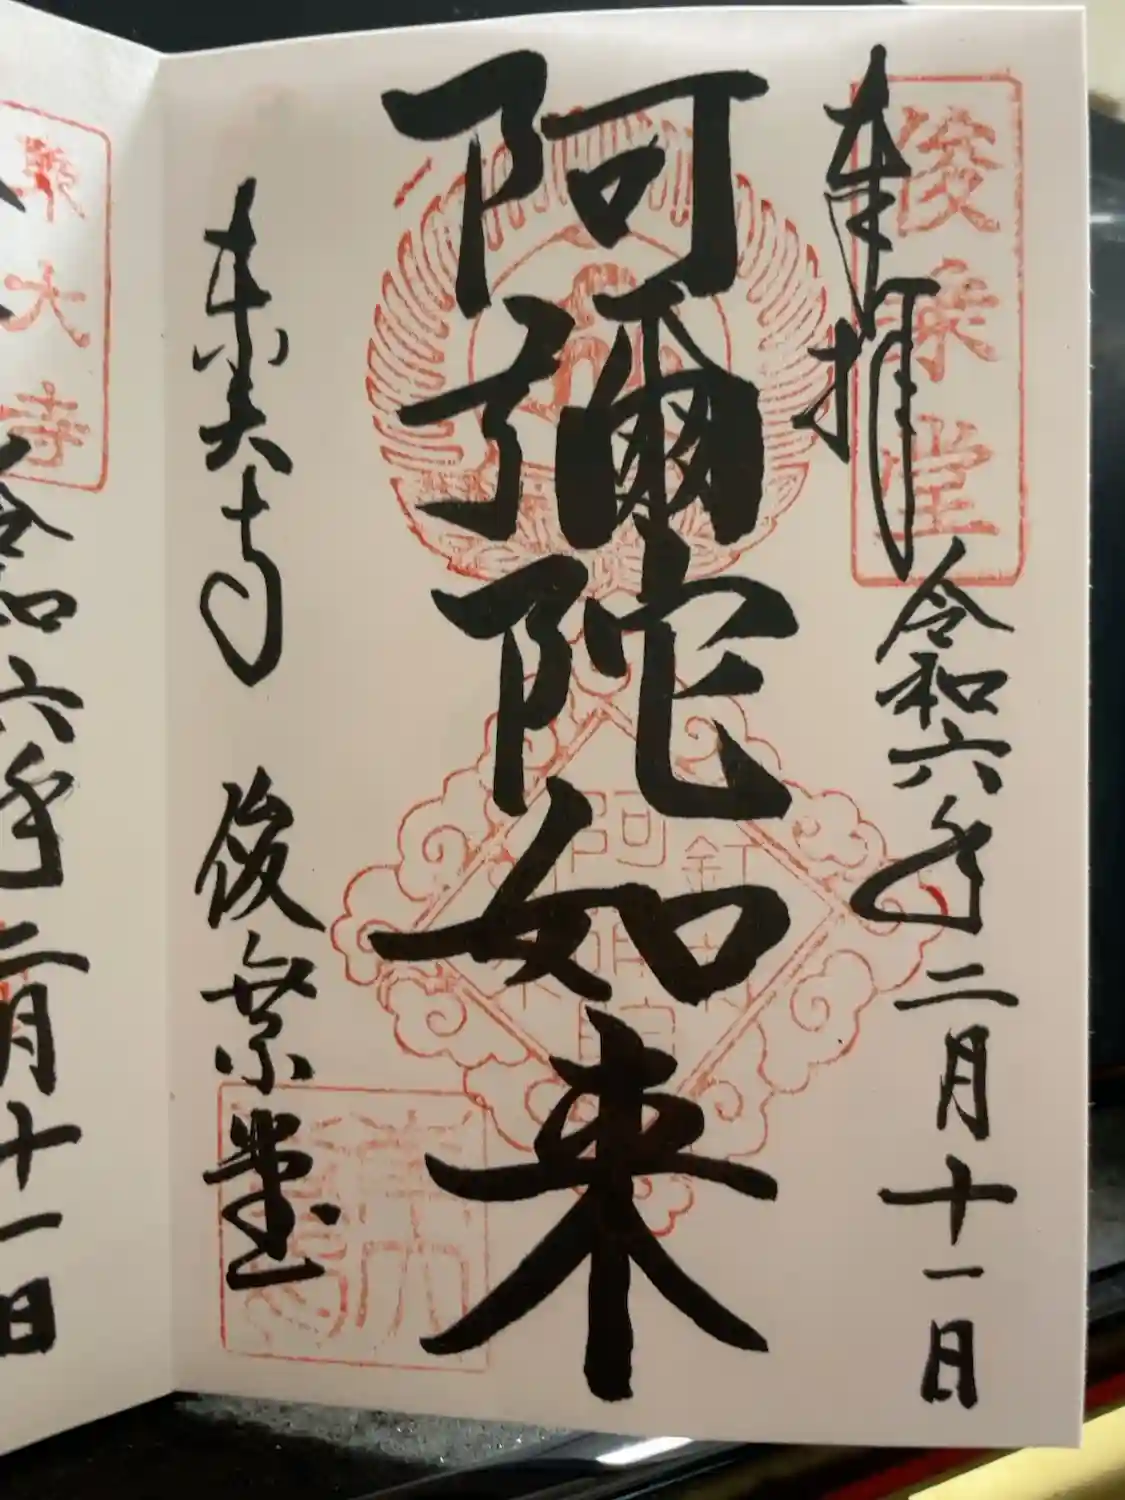 奉拝
俊乗堂
令和六年二月十一日
阿彌陀如来
東大寺 俊乗堂
東大寺
令和六年二月十一日